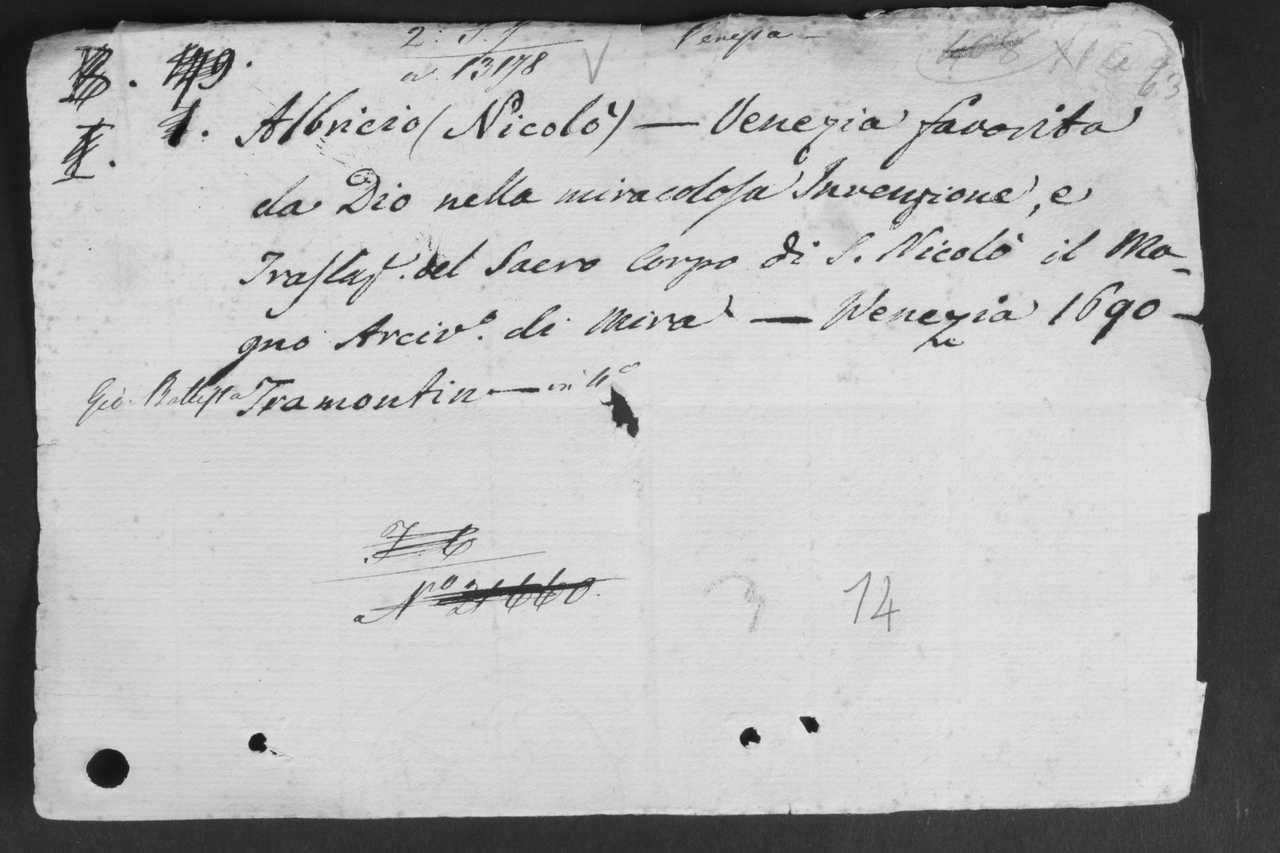 Venezia -
a. 13178
49.
1. Albricio (Nicolò) — Venezia favorita
da Dio nella miracolosa Invenzione, e
Traslaz. del Sacro Corpo di S. Nicolò il Ma-
gno Arciv.º di Mira — Venezia 1690 -
Gio. Battista Tramontin — in 4º
Nº 21660.
14